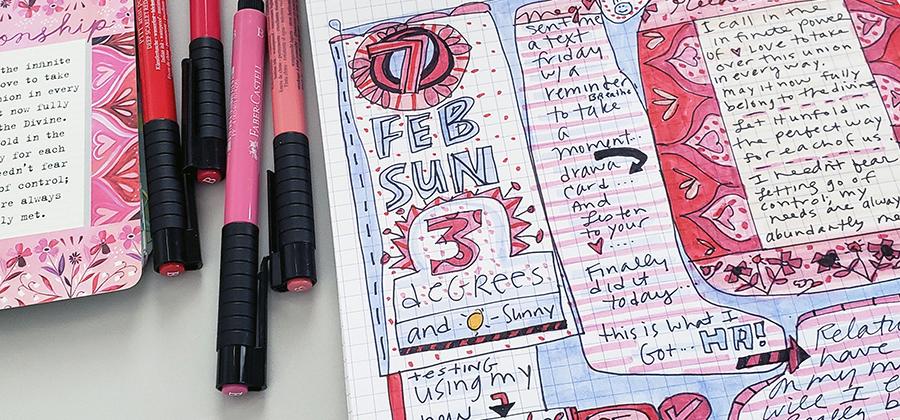 onship
the infinite
ove to take
ion in every
t now fully
the Divine.
old in the
y for each
edn't fear
of control;
re always
ly met.
FABER-CASTELL
7
FEB
SUN
3°
degrees
and - Sunny
testing
using my
new
sent me
a text
friday
w/ a
reminder
Breathe
to take
a
moment...
draw a
card...
And
listen
to your
♥....
Finally
did it
today...
this is what I
Got... HA!
I call in the
infinite power
of ♥ Love to take
over this union
in every way.
may it now fully
belong to the divine
Let it unfold in
the perfect way
for each of us
I needn't fear
letting go of
control; my
needs are always
abundantly me
Relatio
have
on my m
will I